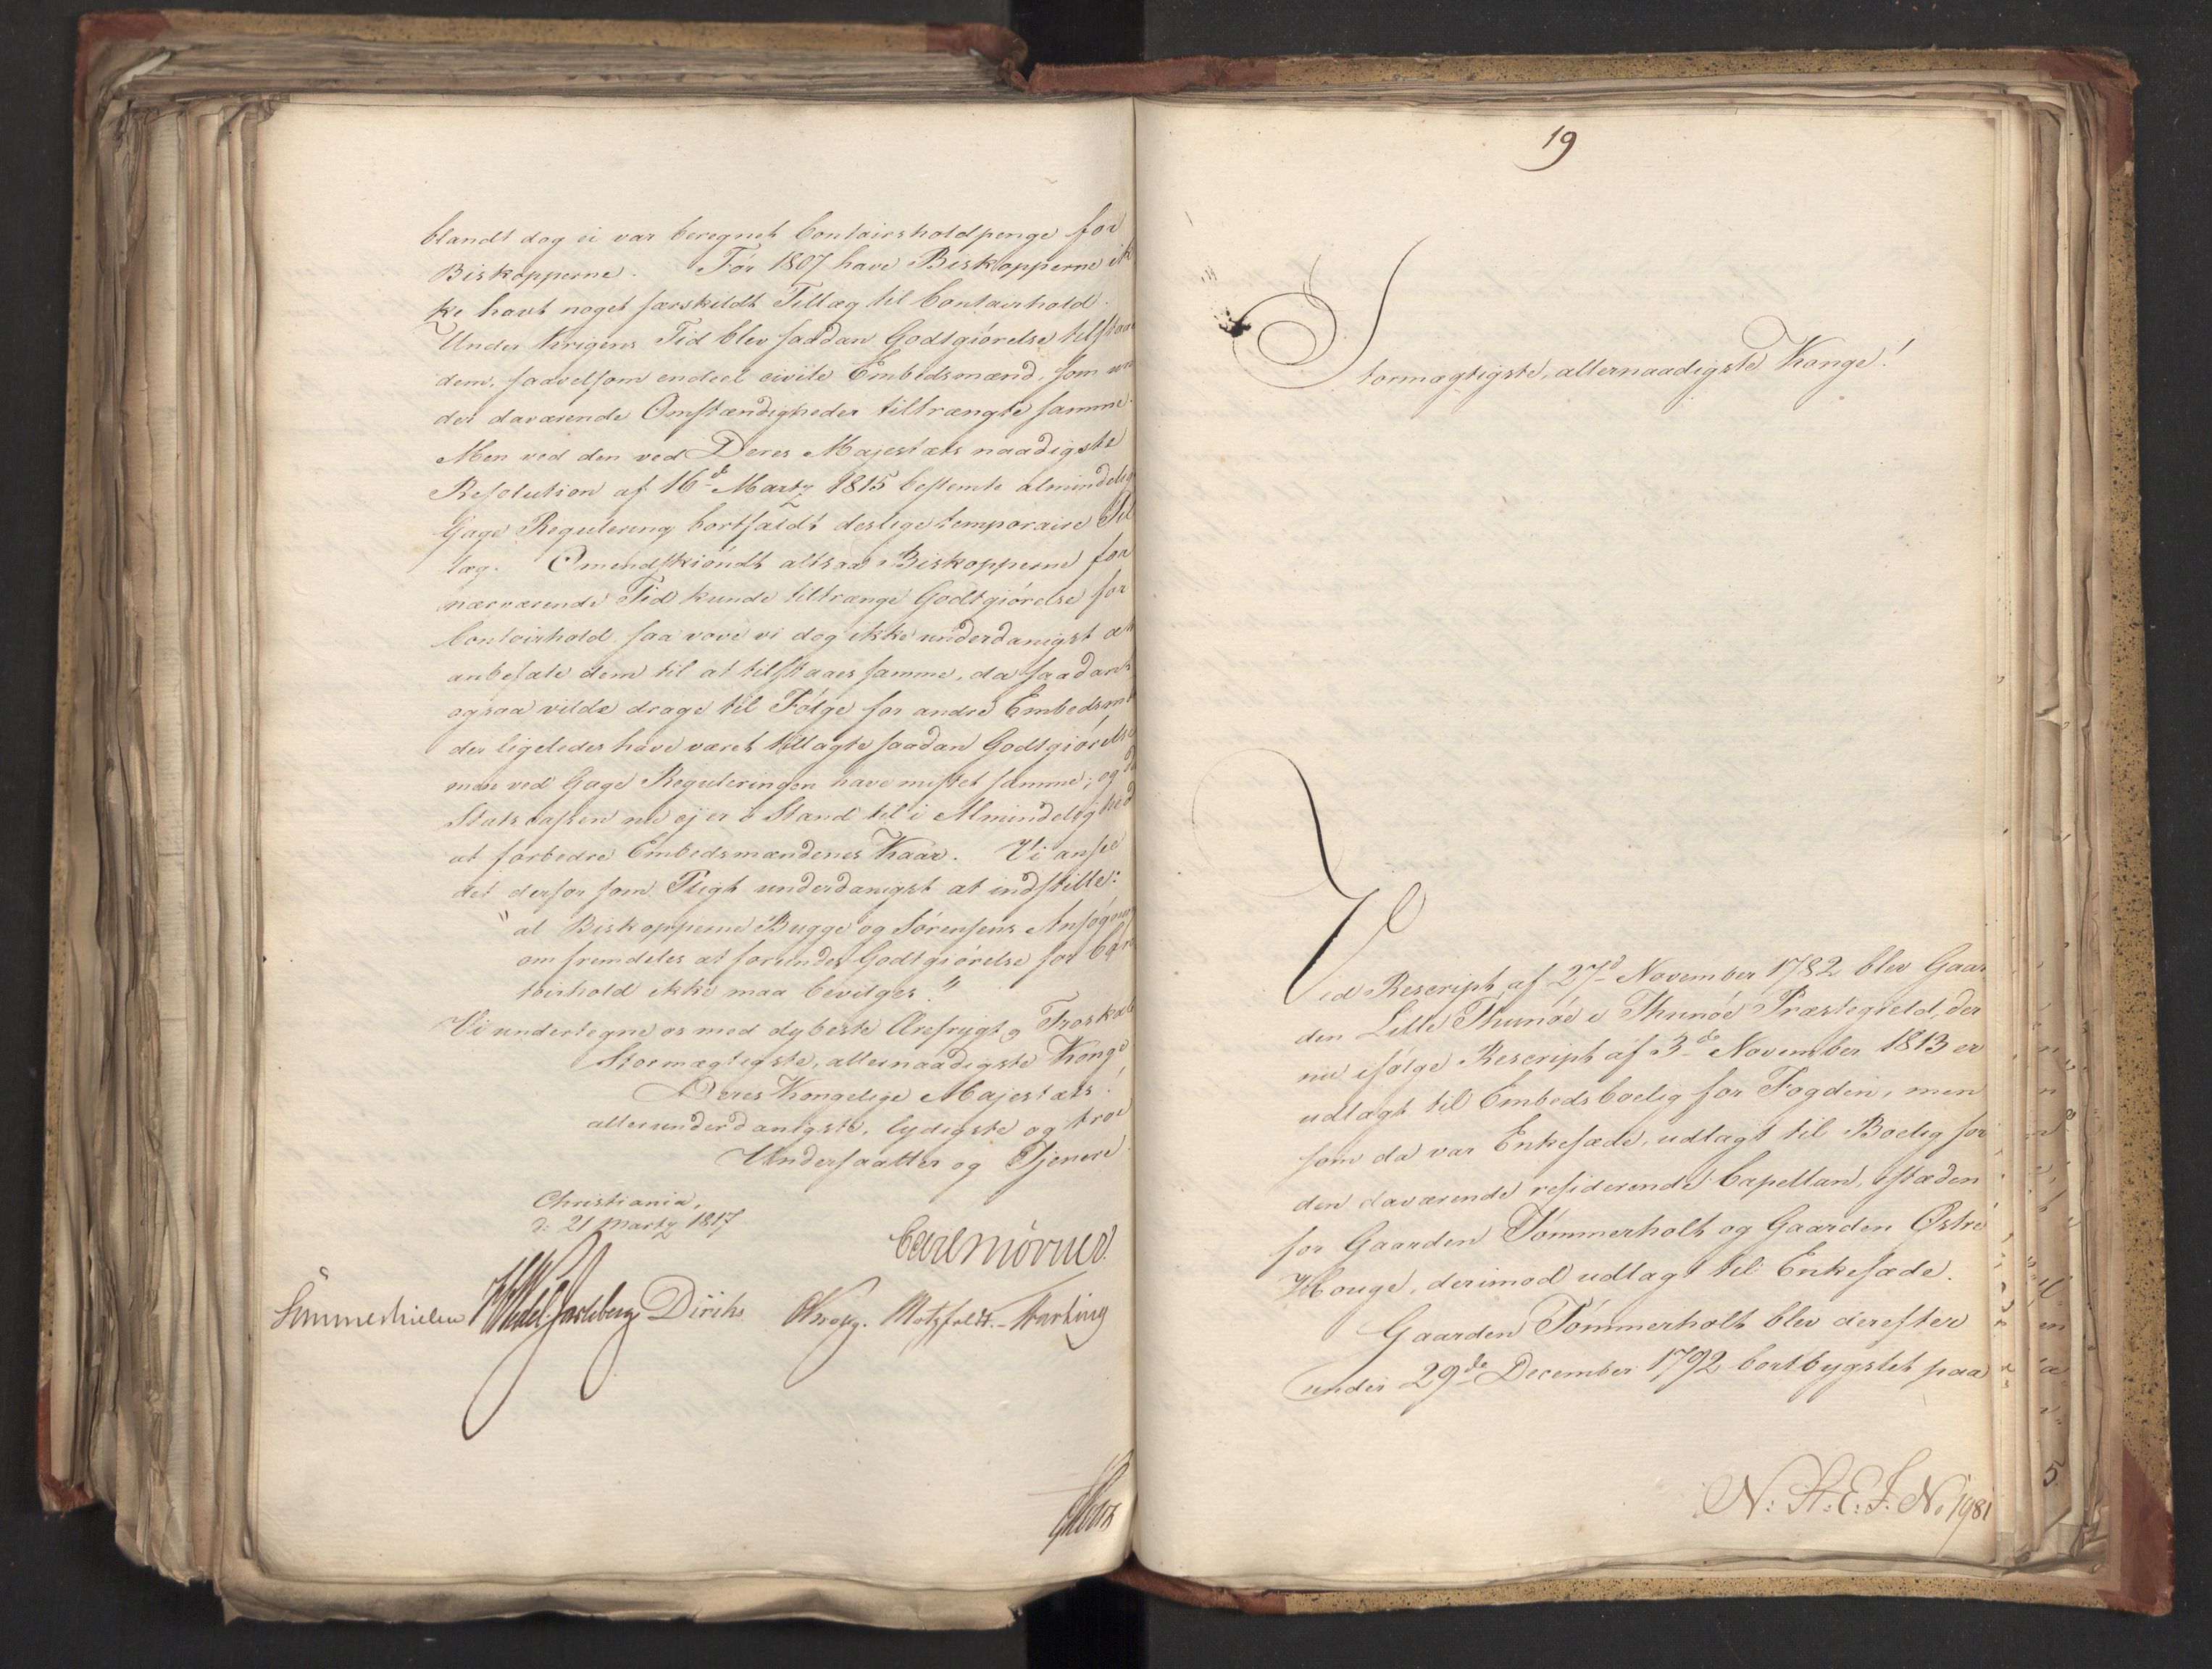 blandt dog ei var beregnet Contoirsholdpenge for
Biskopperne. Før 1807 have Biskopperne ik
ke havt noget særskildt Tillæg til Contoirhold.
Under Krigens Tid blev saadan Godtgiørelse tilstaaet
dem, saavelsom endeel civile Embedsmænd, som un
der daværende Omstændigheder tiltrængte samme.
Men ved den ved Deres Majestæts naadigste
Resolution af 16de Martz 1815 bestemte almindelig
Gage Regulering bortfaldt deslige temporaire Til
læg. Omendskiöndt altsaa Biskopperne for
nærværende Tid kunde tiltrænge Godtgiørelse for
Contoirhold saa vove vi dog ikke underdanigst at
anbefale dem til at tilstaaes samme, da saadant
ogsaa vilde drage til Følge for andre Embedsmæ
der ligeledes have været tillagte saadan Godtgiørelse
men ved Gage Reguleringen have mistet samme; og da
Statscassen nu ej er i Stand til i Almindelighed
at forbedre Embedsmændenes Kaar. Vi ansee
det derfor som Pligt underdanigst at indstille:
"at Biskopperne Bugge og Sørensens Ansøgning
om fremdeles at forundes Godtgiørelse for Con
toirhold ikke maa bevilges."
Vi undertegne os med dybeste Ærefrygt og Troskab
Stormægtigste, allernaadigste Konge
Deres Kongelige Majestæts!
allerunderdanigste, lydigste og troe
Undersaatter og Tjenere
Christiania,
d: 21 Martz 1817
Carl Mörner.
Sommerhielm HWedel Jarlsberg Diriks Krogh. Motzfeldt.
19
Stormægtigste, allernaadigste Konge!
Ved Rescript af 27d November 1782 blev Gaar
den Lille Thunøe i Thunøe Præstegield, der
nu ifølge Rescript af 3de November 1813 er
udlagt til Embedsboelig for Fogden, men
som da var Enkesæde, udlagt til Boelig for
den daværende residerende Capellan, istæden
for Gaarden Tömmerholt og Gaarden Østre
Houge, derimod udlagt til Enkesæde.
Gaarden Tömmerholt blev derefter
under 29de December 1792 bortbygslet paa
N: St: E: J. No 1981